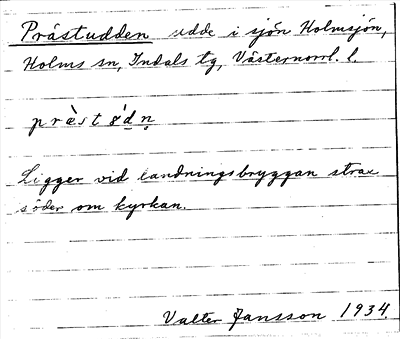 Prästudden udde i sjön Holmsjön,
Holms sn, Indals tg, Västernorrl. l.
Ligger vid landningsbryggan strax
söder om kyrkan.
Valter Jansson 1934.